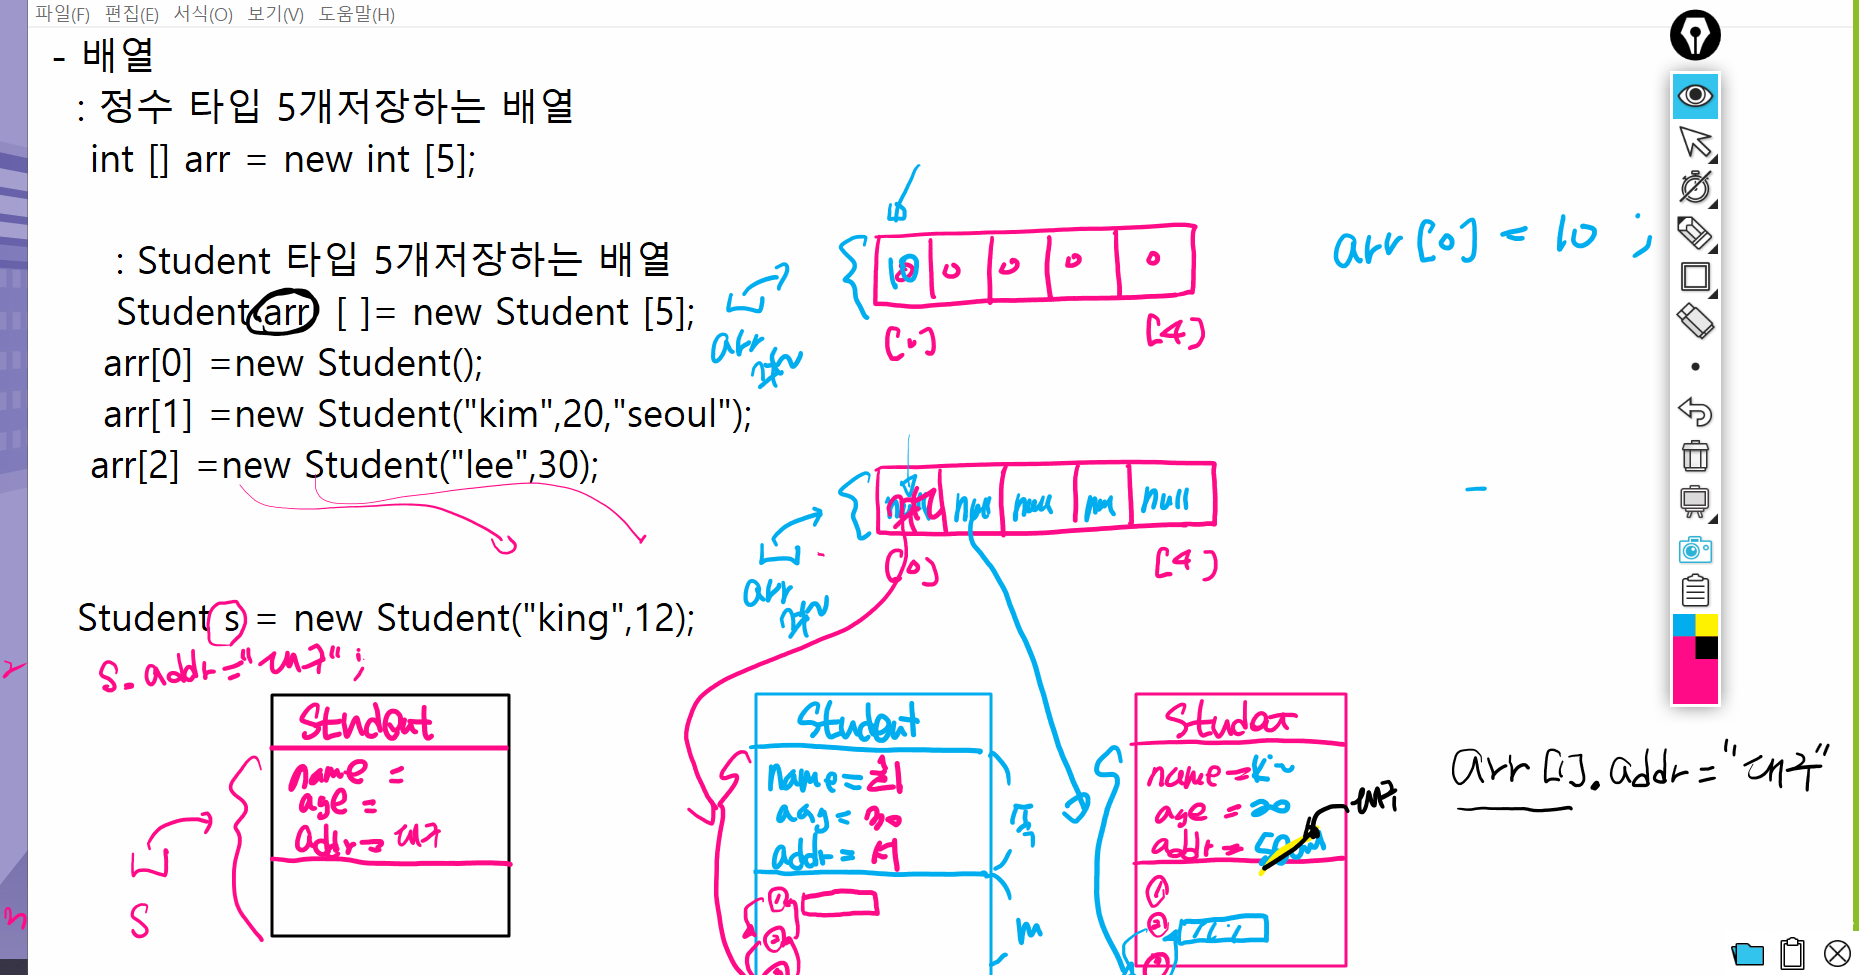 파일(F) 편집(E) 서식(O) 보기(V) 도움말(H)
- 배열
: 정수 타입 5개저장하는 배열
int [] arr = new int [5];
: Student 타입 5개저장하는 배열
Student arr [ ]= new Student [5];
arr[0] =new Student();
arr[1] =new Student("kim",20,"seoul");
arr[2] =new Student("lee",30);
Student s = new Student("king",12);
s.addr="대구";
10
10 0 0 0 0
[0] [4]
arr
arr[0] = 10 ;
null null null null
[0] [4]
arr
Student
name =
age =
addr= 대구
S
Student
name=
addr=
①
②
m
name=
age = 20
addr= seoul
①
②
대구
arr[1].addr="대구"